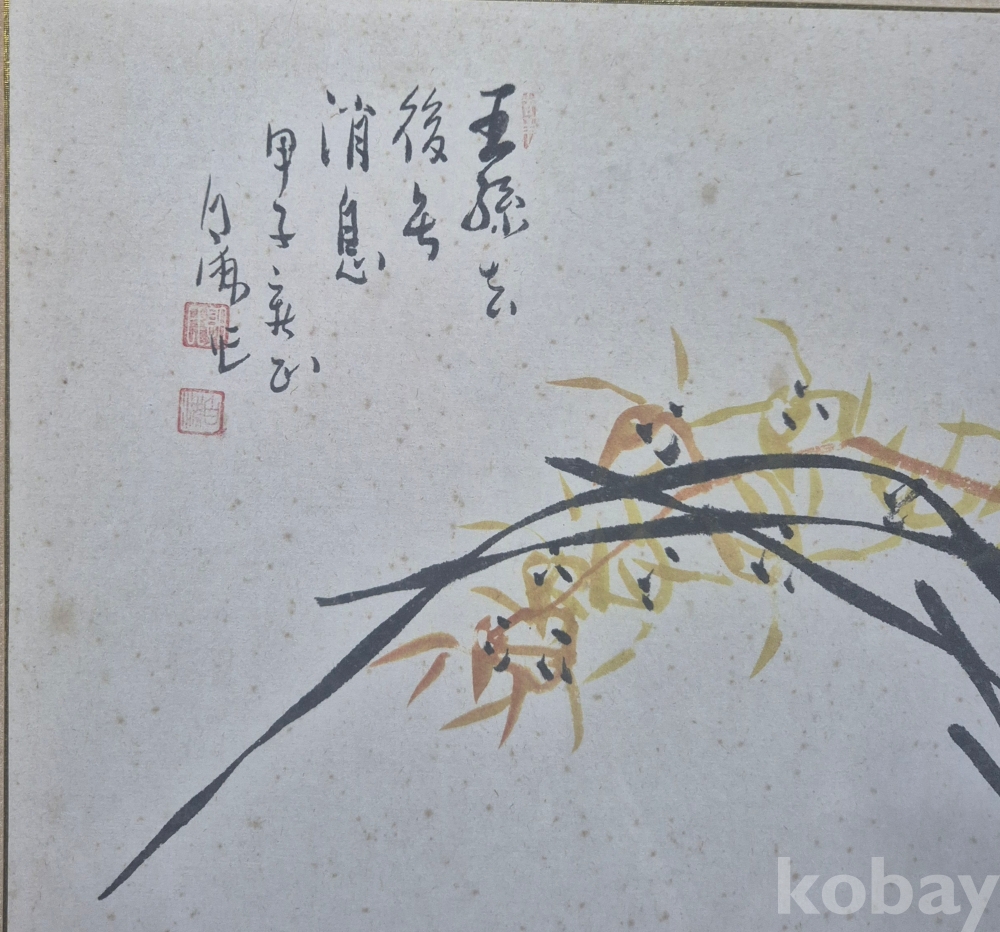 王孫去
後無
消息
甲子新正
kobay